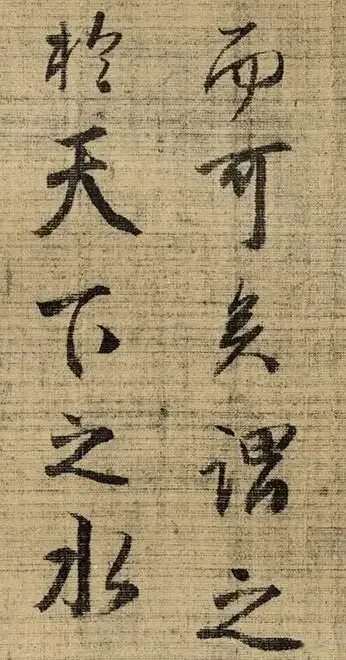 而可矣謂之
於天下之水